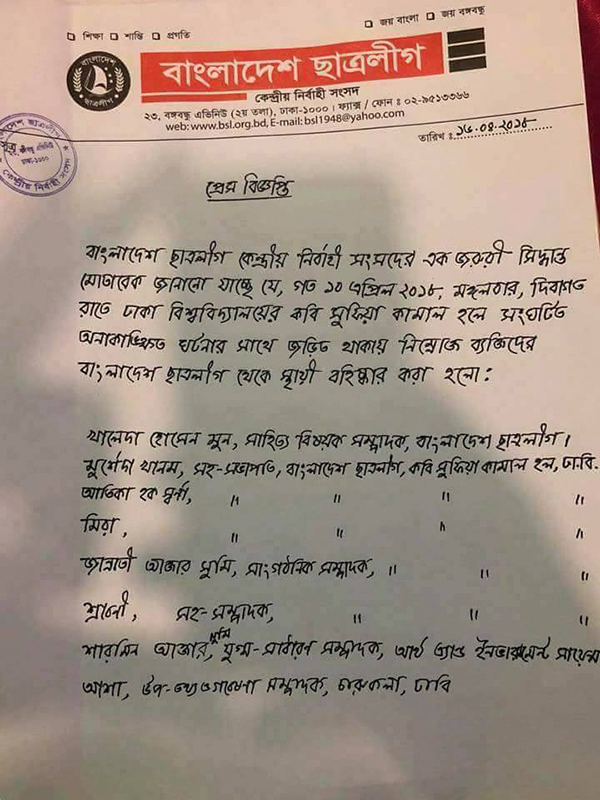 জয় বাংলা জয় বঙ্গবন্ধু
শিক্ষা শান্তি প্রগতি
বাংলাদেশ ছাত্রলীগ
বাংলাদেশ ছাত্রলীগ
কেন্দ্রীয় নির্বাহী সংসদ
২৩, বঙ্গবন্ধু এভিনিউ (২য় তলা), ঢাকা-১০০০। ফ্যাক্স / ফোন : ০২-৯৫১৩৩৬৬
web: www.bsl.org.bd, E-mail: bsl1948@yahoo.com
তারিখ : ১৬.০৪.২০১৮
কেন্দ্রীয় নির্বাহী সংসদ
প্রেস বিজ্ঞপ্তি
বাংলাদেশ ছাত্রলীগ কেন্দ্রীয় নির্বাহী সংসদের এক জরুরী সিদ্ধান্ত
মোতাবেক জানানো যাচ্ছে যে, গত ১০ এপ্রিল ২০১৮, মঙ্গলবার, দিবাগত
রাতে ঢাকা বিশ্ববিদ্যালয়ের কবি সুফিয়া কামাল হলে সংঘটিত
অনাকাঙ্ক্ষিত ঘটনার সাথে জড়িত থাকায় নিম্নোক্ত ব্যক্তিদের
বাংলাদেশ ছাত্রলীগ থেকে স্থায়ী বহিষ্কার করা হলো :
খালেদা হোসেন মুন, সাহিত্য বিষয়ক সম্পাদক, বাংলাদেশ ছাত্রলীগ।
মুর্শেদা খানম, সহ-সভাপতি, বাংলাদেশ ছাত্রলীগ, কবি সুফিয়া কামাল হল, ঢা.বি.
আতিকা হক স্বর্ণা, " " " "
মিরা, " " " "
জান্নাতী আক্তার সুমি, সাংগঠনিক সম্পাদক, " " "
শ্রাবণী, সহ-সম্পাদক, " " "
শারমিন আক্তার সুমি, যুগ্ম-সাধারণ সম্পাদক, আর্থ এ্যান্ড ইনভায়রনমেন্ট সায়েন্স
আশা, উপ- সম্পাদক, চারুকলা, ঢাবি